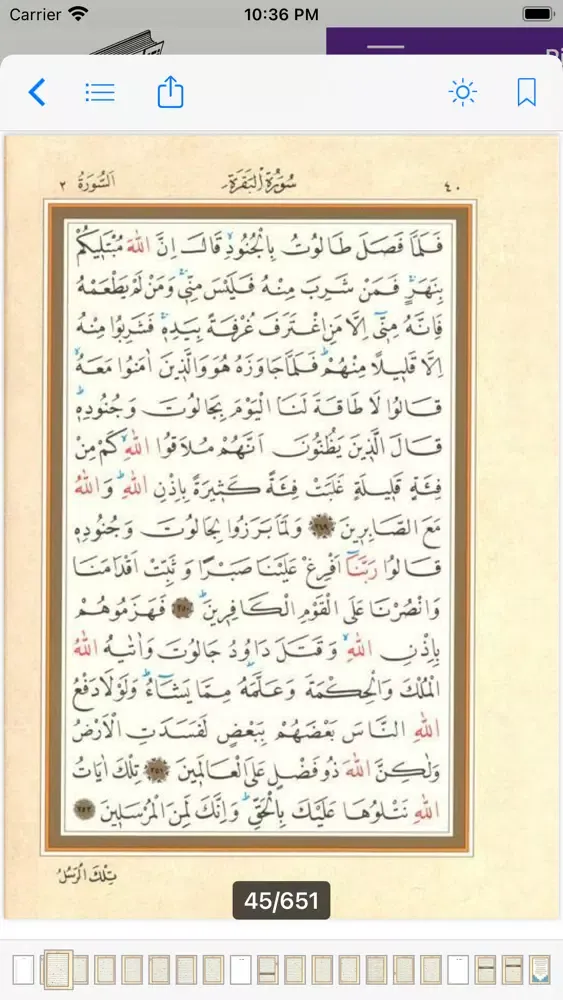 Carrier 10:36 PM
Pi
اَلسُّورَةُ ٢ سُورَةُ الْبَقَرَةِ ٤٠
فَلَمَّا فَصَلَ طَالُوتُ بِالْجُنُودِ قَالَ اِنَّ اللّٰهَ مُبْتَلِيكُمْ
بِنَهَرٍ فَمَنْ شَرِبَ مِنْهُ فَلَيْسَ مِنّٖي وَمَنْ لَمْ يَطْعَمْهُ
فَاِنَّهُ مِنّٖٓي اِلَّا مَنِ اغْتَرَفَ غُرْفَةً بِيَدِهٖ فَشَرِبُوا مِنْهُ
اِلَّا قَلٖيلًا مِنْهُمْ فَلَمَّا جَاوَزَهُ هُوَ وَالَّذٖينَ اٰمَنُوا مَعَهُ
قَالُوا لَا طَاقَةَ لَنَا الْيَوْمَ بِجَالُوتَ وَجُنُودِهٖ
قَالَ الَّذٖينَ يَظُنُّونَ اَنَّهُمْ مُلَاقُوا اللّٰهِ كَمْ مِنْ
فِئَةٍ قَلٖيلَةٍ غَلَبَتْ فِئَةً كَثٖيرَةً بِاِذْنِ اللّٰهِ وَاللّٰهُ
مَعَ الصَّابِرٖينَ ٢٤٩ وَلَمَّا بَرَزُوا لِجَالُوتَ وَجُنُودِهٖ
قَالُوا رَبَّنَٓا اَفْرِغْ عَلَيْنَا صَبْرًا وَثَبِّتْ اَقْدَامَنَا
وَانْصُرْنَا عَلَى الْقَوْمِ الْكَافِرٖينَ ٢٥٠ فَهَزَمُوهُمْ
بِاِذْنِ اللّٰهِ وَقَتَلَ دَاوُدُ جَالُوتَ وَاٰتٰيهُ اللّٰهُ
الْمُلْكَ وَالْحِكْمَةَ وَعَلَّمَهُ مِمَّا يَشَٓاءُ وَلَوْلَا دَفْعُ
اللّٰهِ النَّاسَ بَعْضَهُمْ بِبَعْضٍ لَفَسَدَتِ الْاَرْضُ
وَلٰكِنَّ اللّٰهَ ذُو فَضْلٍ عَلَى الْعَالَمٖينَ ٢٥١ تِلْكَ اٰيَاتُ
اللّٰهِ نَتْلُوهَا عَلَيْكَ بِالْحَقِّ وَاِنَّكَ لَمِنَ الْمُرْسَلٖينَ ٢٥٢
تِلْكَ الرُّسُلُ
45/651